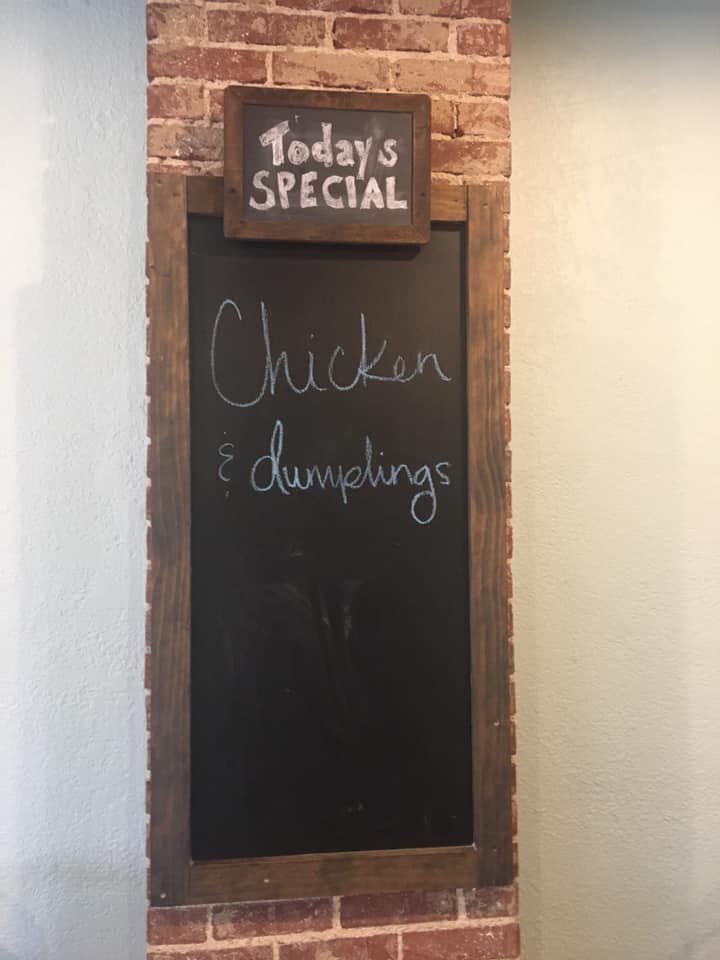 Today's
SPECIAL
Chicken
& dumplings